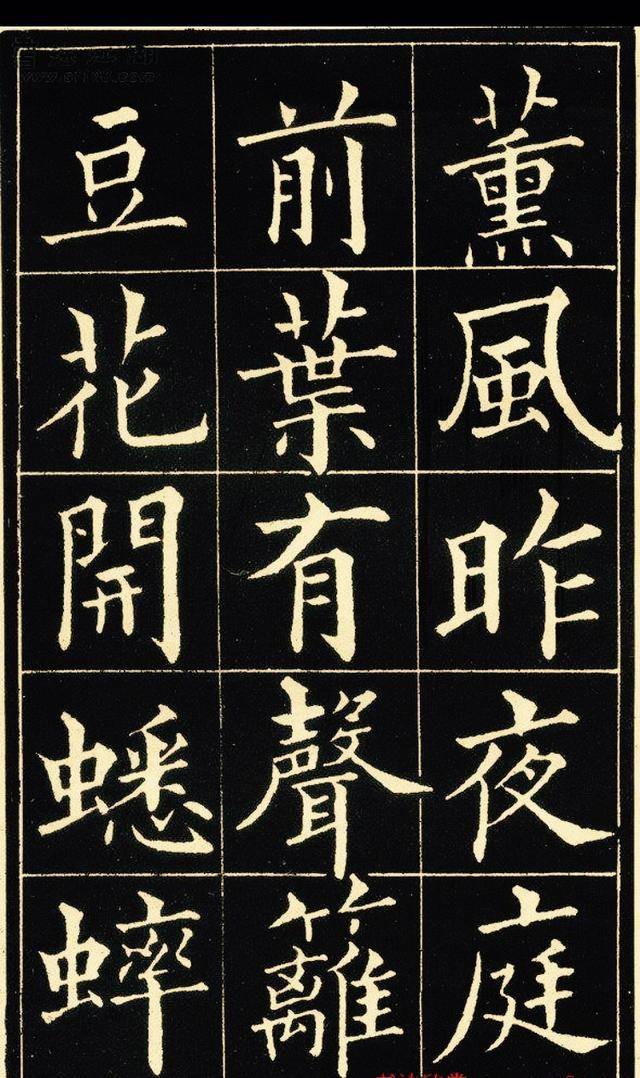 薰風昨夜庭
前葉有聲籬
豆花開蟋蟀